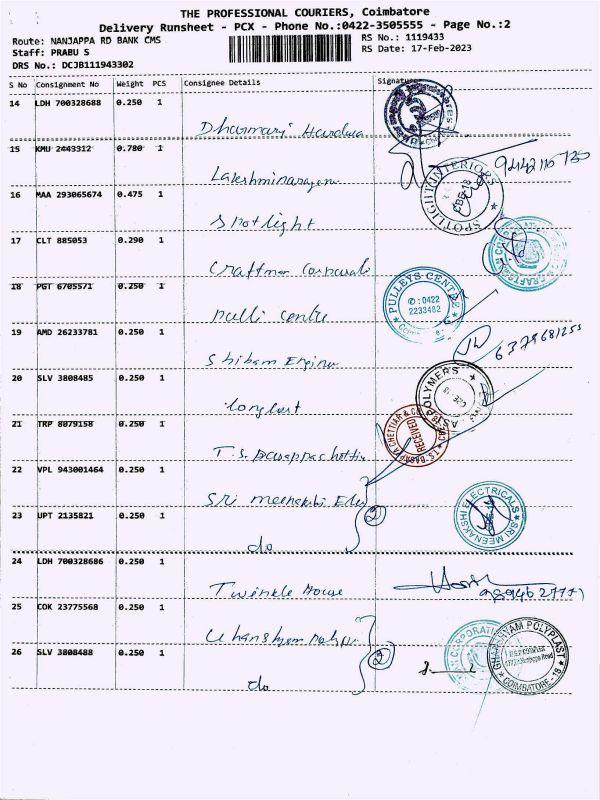 THE PROFESSIONAL COURIERS, Coimbatore
Delivery Runsheet - PCX - Phone No.:0422-3505555 - Page No.:2
Route: NANJAPPA RD BANK CMS
RS No.: 1119433
Staff: PRABU S
RS Date: 17-Feb-2023
DRS No.: DCJB111943302
S No Consignment No Weight PCS Consignee Details Signature
14 LDH 700328688 0.250 1
15 KMU 2443312 0.780 1
Lakshminarayana
9442116735
16 MAA 293065674 0.475 1
Spotlight
SPOTLIGHT INTERIORS
CBE-18
17 CLT 885053 0.290 1
18 PGT 6705571 0.250 1
Pulli centre
PULLEYS CENTRE
✆: 0422
2233482
19 AMD 26233781 0.250 1
Shibam Engine
6379681255
20 SLV 3808485 0.250 1
AS POLYMERS
21 TRP 8079158 0.250 1
RECEIVED
22 VPL 943001464 0.250 1
Sri meenakshi Ele
SRI MEENAKSHI ELECTRICALS
23 UPT 2135821 0.250 1
do
2
24 LDH 700328686 0.250 1
Twinkle House
25 COK 23775568 0.250 1
Ghanshyam polypl
26 SLV 3808488 0.250 1
do
2
GHANSHYAM POLYPLAST
COIMBATORE-18